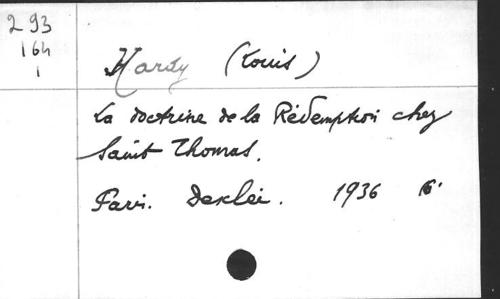 293
164
1
Hardy (Louis)
La doctrine de la Rédemption chez
Saint Thomas.
Paris. Desclée. 1936